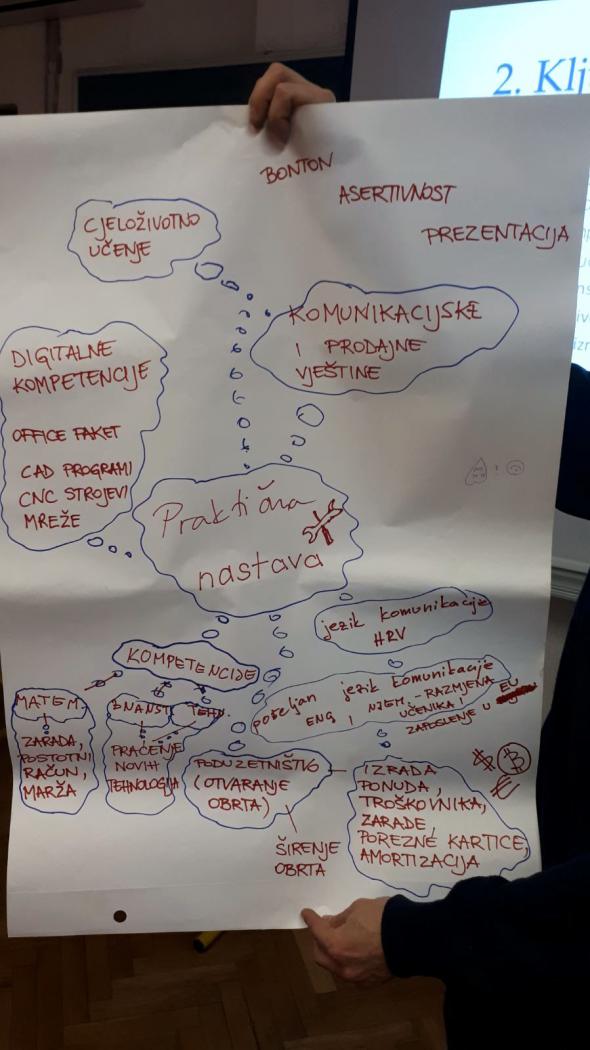 2. Klj
BONTON
ASERTIVNOST
PREZENTACIJA
CJELOŽIVOTNO
UČENJE
KOMUNIKACIJSKE
I PRODAJNE
VJEŠTINE
DIGITALNE
KOMPETENCIJE
OFFICE PAKET
CAD PROGRAMI
CNC STROJEVI
MREŽE
Praktična
nastava
jezik komunikacije
HRV
KOMPETENCIJE
MATEM.
ZARADA,
POSTOTNI
RAČUN,
MARŽA
ZNANST.
TEHN.
PRAĆENJE
NOVIH
TEHNOLOGIJA
poželjan jezik komunikacije
ENG I NJEM. - RAZMJENA
UČENIKA I
ZAPOSLENJE U EU
PODUZETNIŠTVO
(OTVARANJE
OBRTA)
ŠIRENJE
OBRTA
IZRADA
PONUDA,
TROŠKOVNIKA,
ZARADE,
POREZNE KARTICE,
AMORTIZACIJA
$ B
€